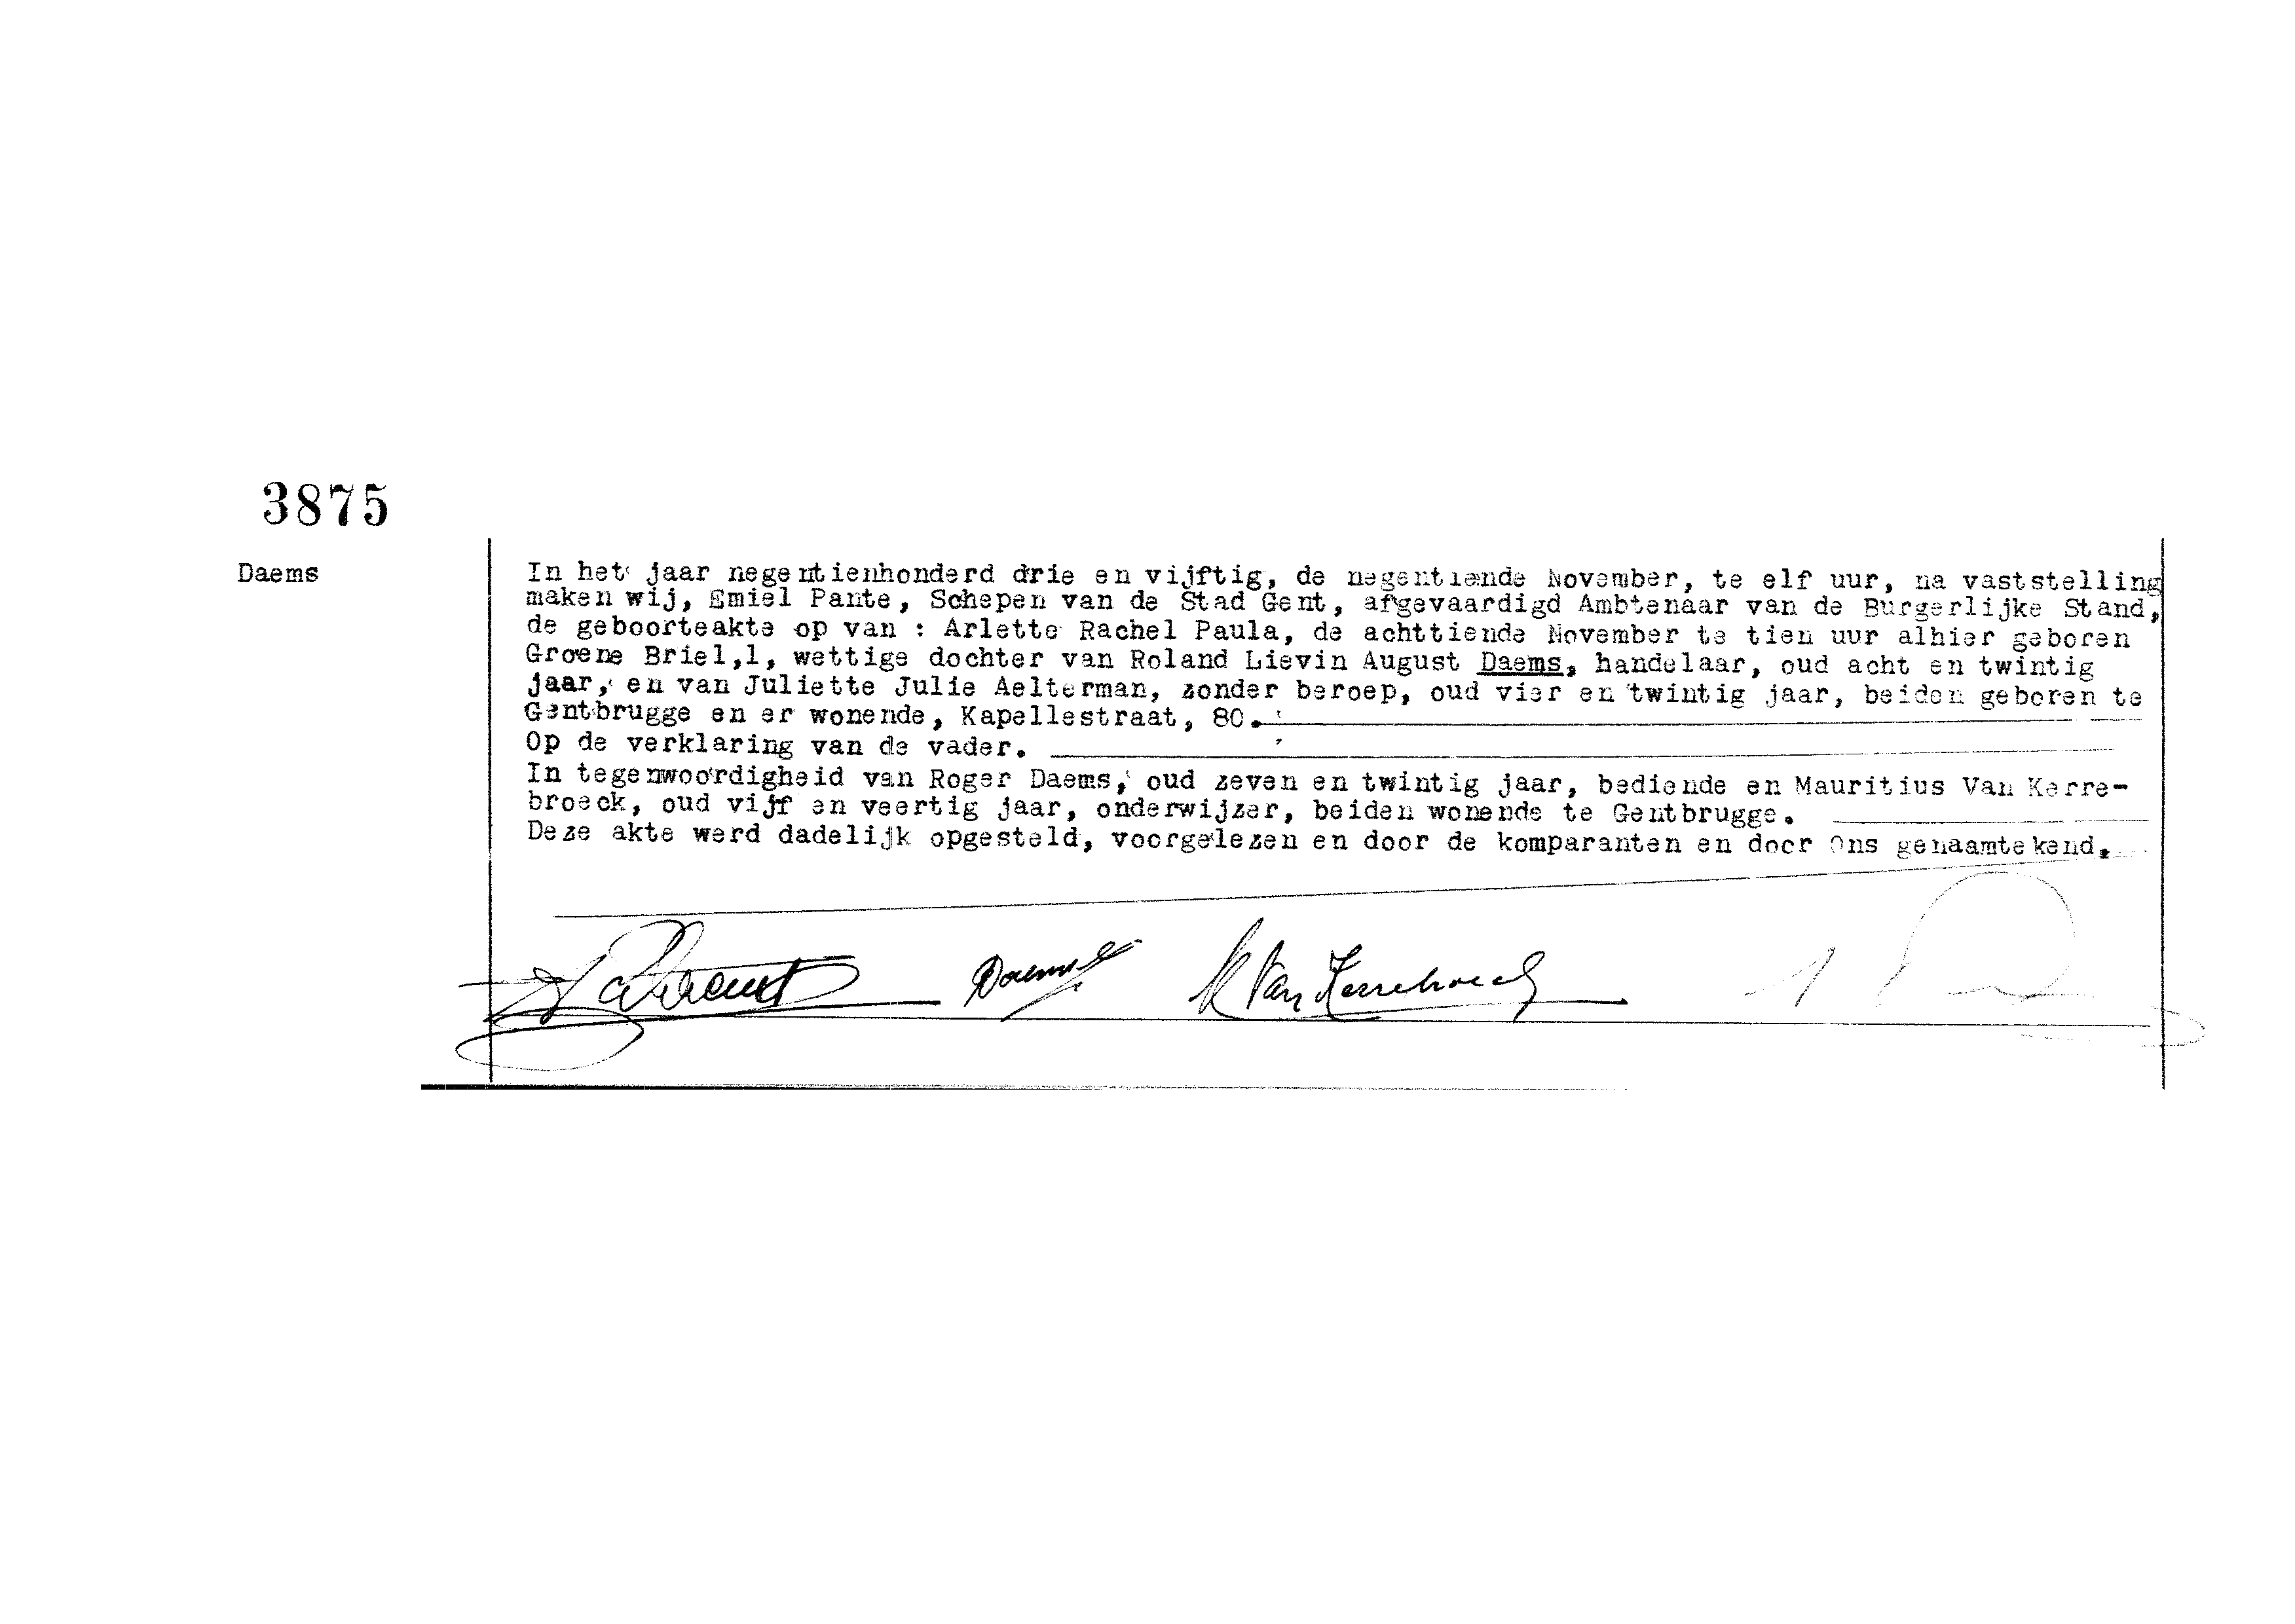 3875
Daems
In het jaar negentienhonderd drie en vijftig, de negentiende November, te elf uur, na vaststelling
maken wij, Emiel Pante, Schepen van de Stad Gent, afgevaardigd Ambtenaar van de Burgerlijke Stand,
de geboorteakte op van : Arlette Rachel Paula, de achttiende November te tien uur alhier geboren
Groene Briel,1, wettige dochter van Roland Lievin August Daems, handelaar, oud acht en twintig
jaar, en van Juliette Julie Aelterman, zonder beroep, oud vier en twintig jaar, beiden geboren te
Gentbrugge en er wonende, Kapellestraat, 80.
Op de verklaring van de vader.
In tegenwoordigheid van Roger Daems, oud zeven en twintig jaar, bediende en Mauritius Van Kerre-
broeck, oud vijf en veertig jaar, onderwijzer, beiden wonende te Gentbrugge.
Deze akte werd dadelijk opgesteld, voorgelezen en door de komparanten en door Ons genaamtekend.
Daems M Van Kerrebroeck